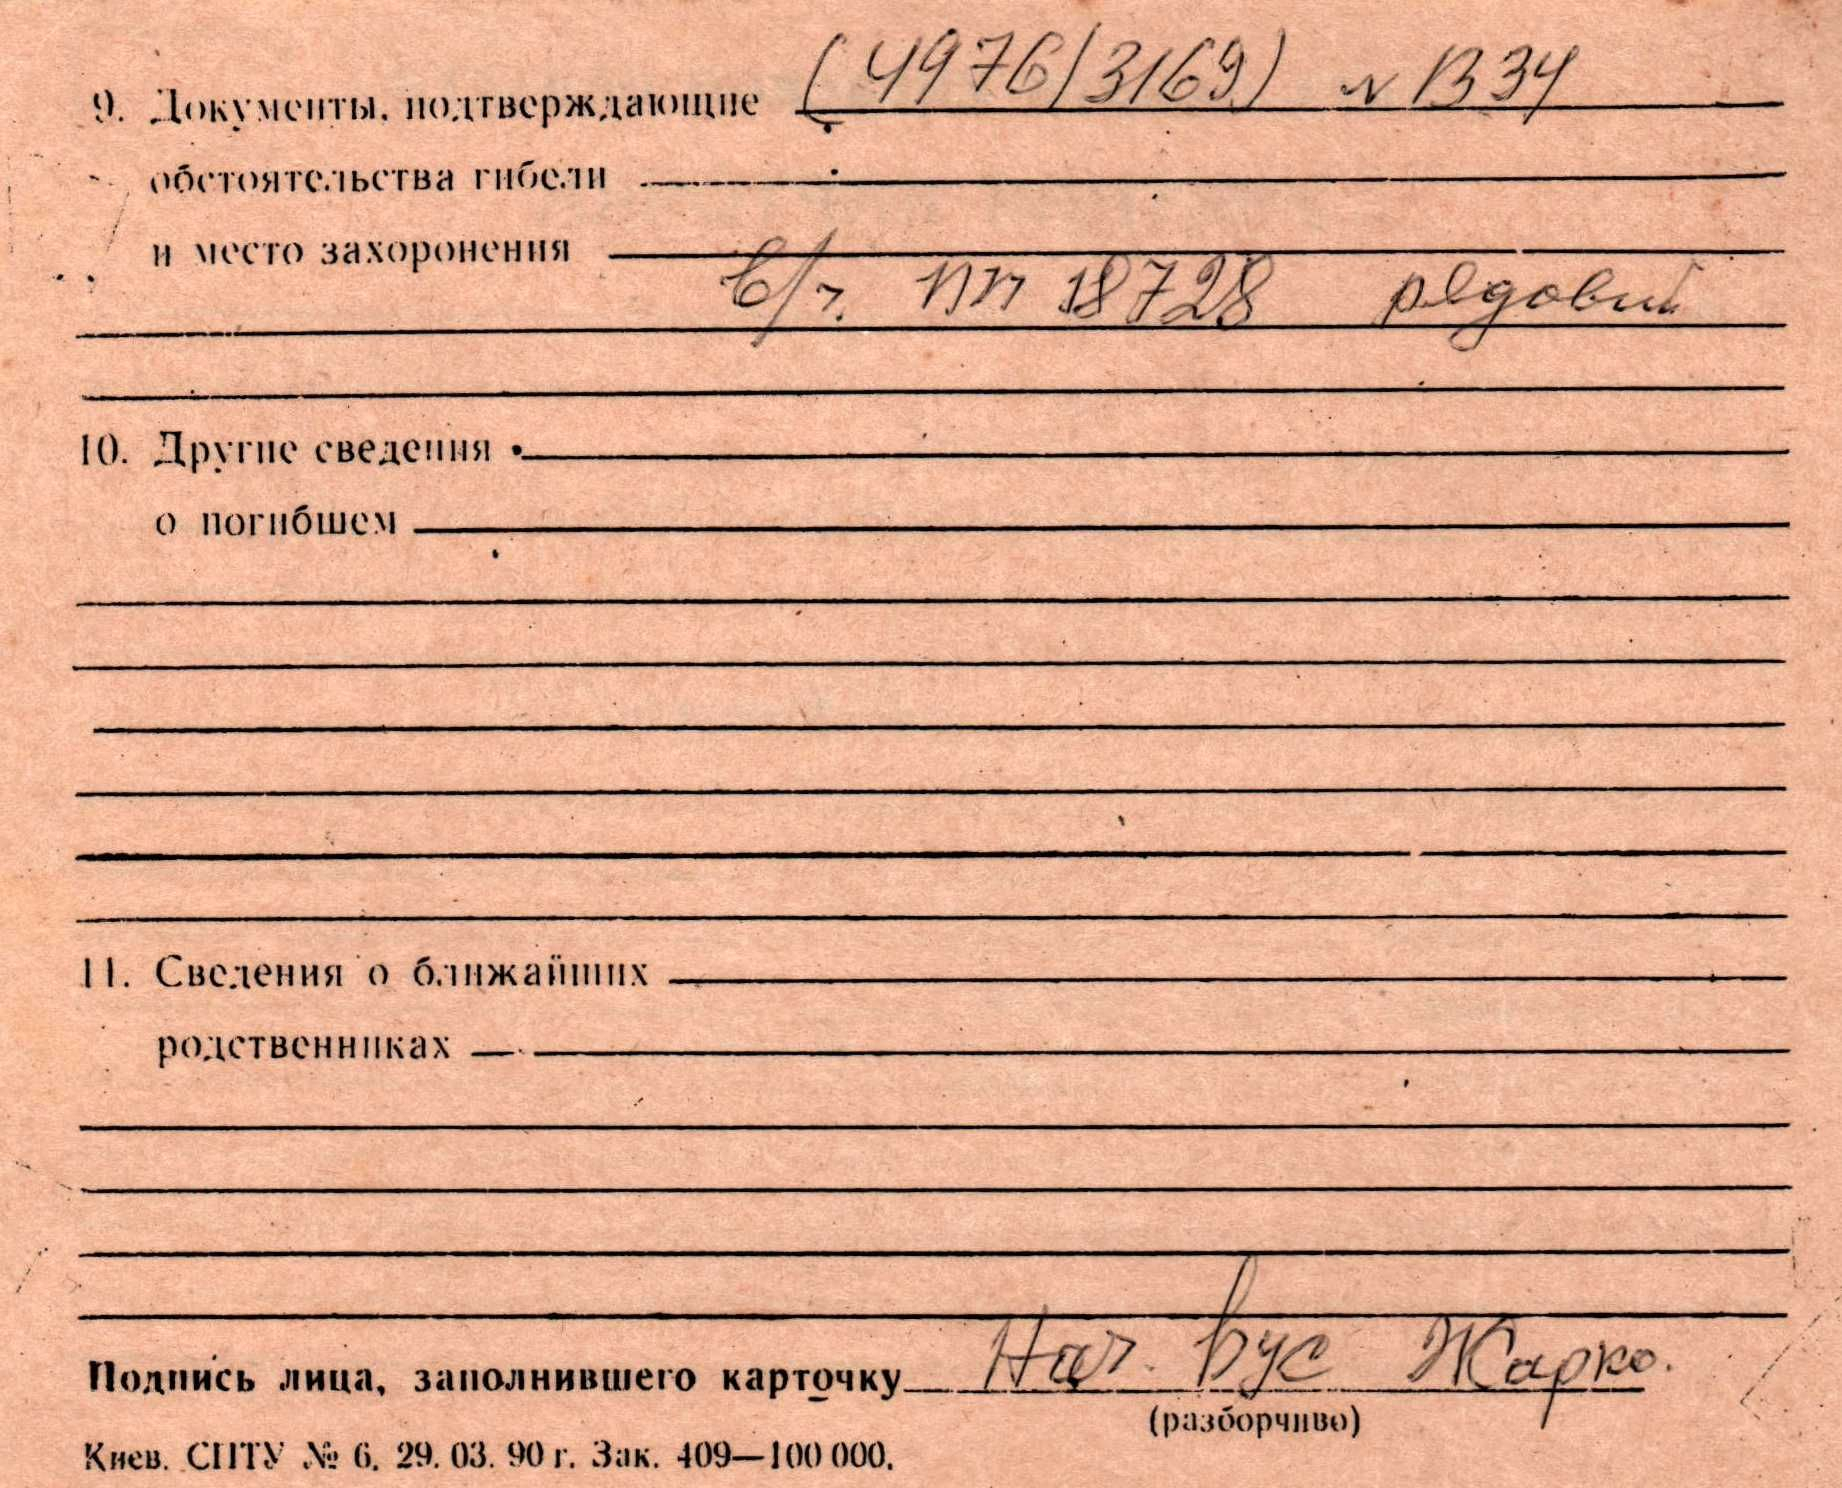 9. Документы, подтверждающие (4976/3169) N 1334
обстоятельства гибели
и место захоронения
в/ч. пп 18728 рядовий
10. Другие сведения
о погибшем
11. Сведения о ближайших
родственниках
Подпись лица, заполнившего карточку Нач. вус Жарко.
(разборчиво)
Киев. СПТУ № 6. 29. 03. 90 г. Зак. 409—100 000.